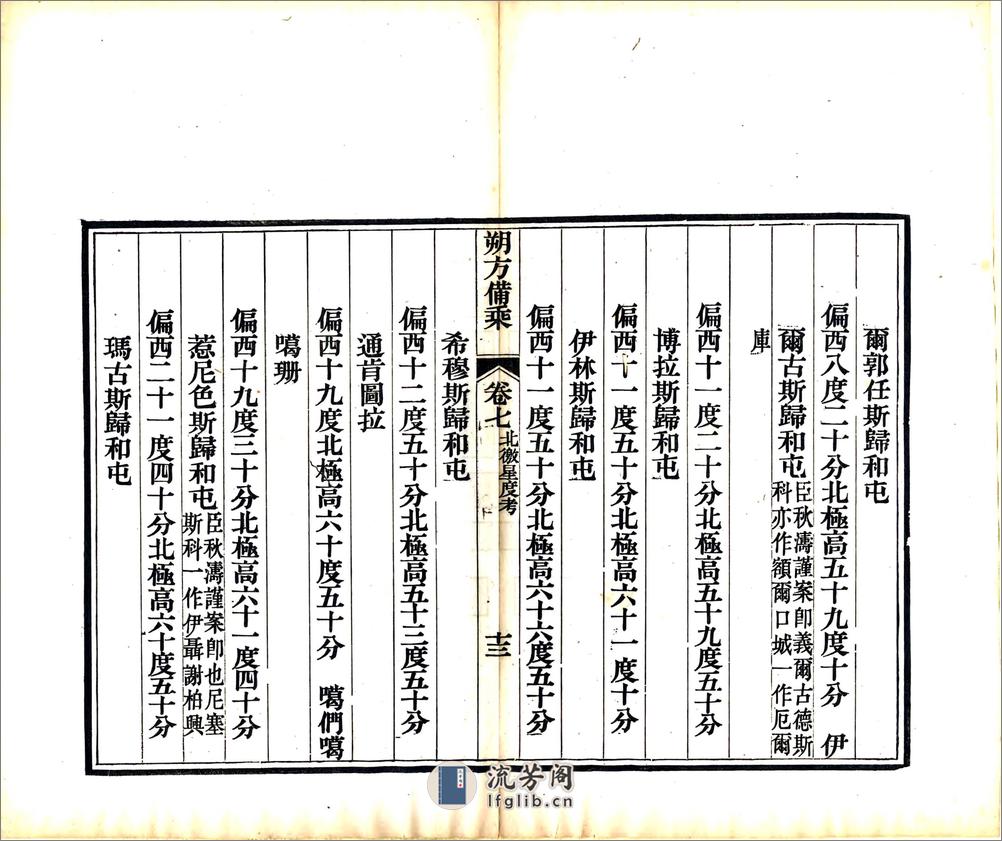 爾郭任斯歸和屯
偏西八度二十分北極高五十九度十分　伊
爾古斯歸和屯臣秋濤謹案卽義爾古德斯
科亦作額爾口城一作厄爾
庫
偏西十一度二十分北極高五十九度五十分
博拉斯歸和屯
偏西十一度五十分北極高六十一度十分
伊林斯歸和屯
偏西十一度五十分北極高六十六度五十分
朔方備乘
卷七
北徼星度考
十三
希穆斯歸和屯
偏西十二度五十分北極高五十三度五十分
通肯圖拉
偏西十九度北極高六十度五十分　噶們噶
噶珊
偏西十九度三十分北極高六十一度四十分
惹尼色斯歸和屯臣秋濤謹案卽也尼塞
斯科一作伊聶謝柏興
偏西二十一度四十分北極高六十度五十分
瑪古斯歸和屯
流芳阁
lfglib.cn